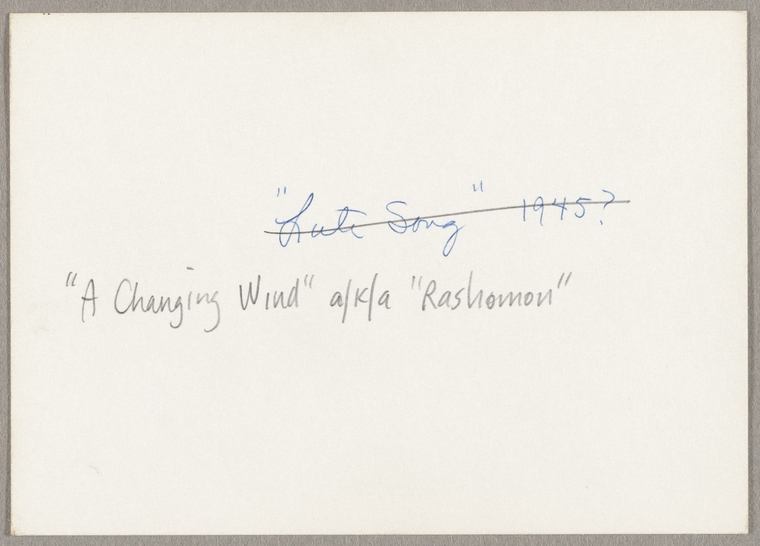 "Lute Song" 1945?
"A Changing Wind" a/k/a "Rashomon"